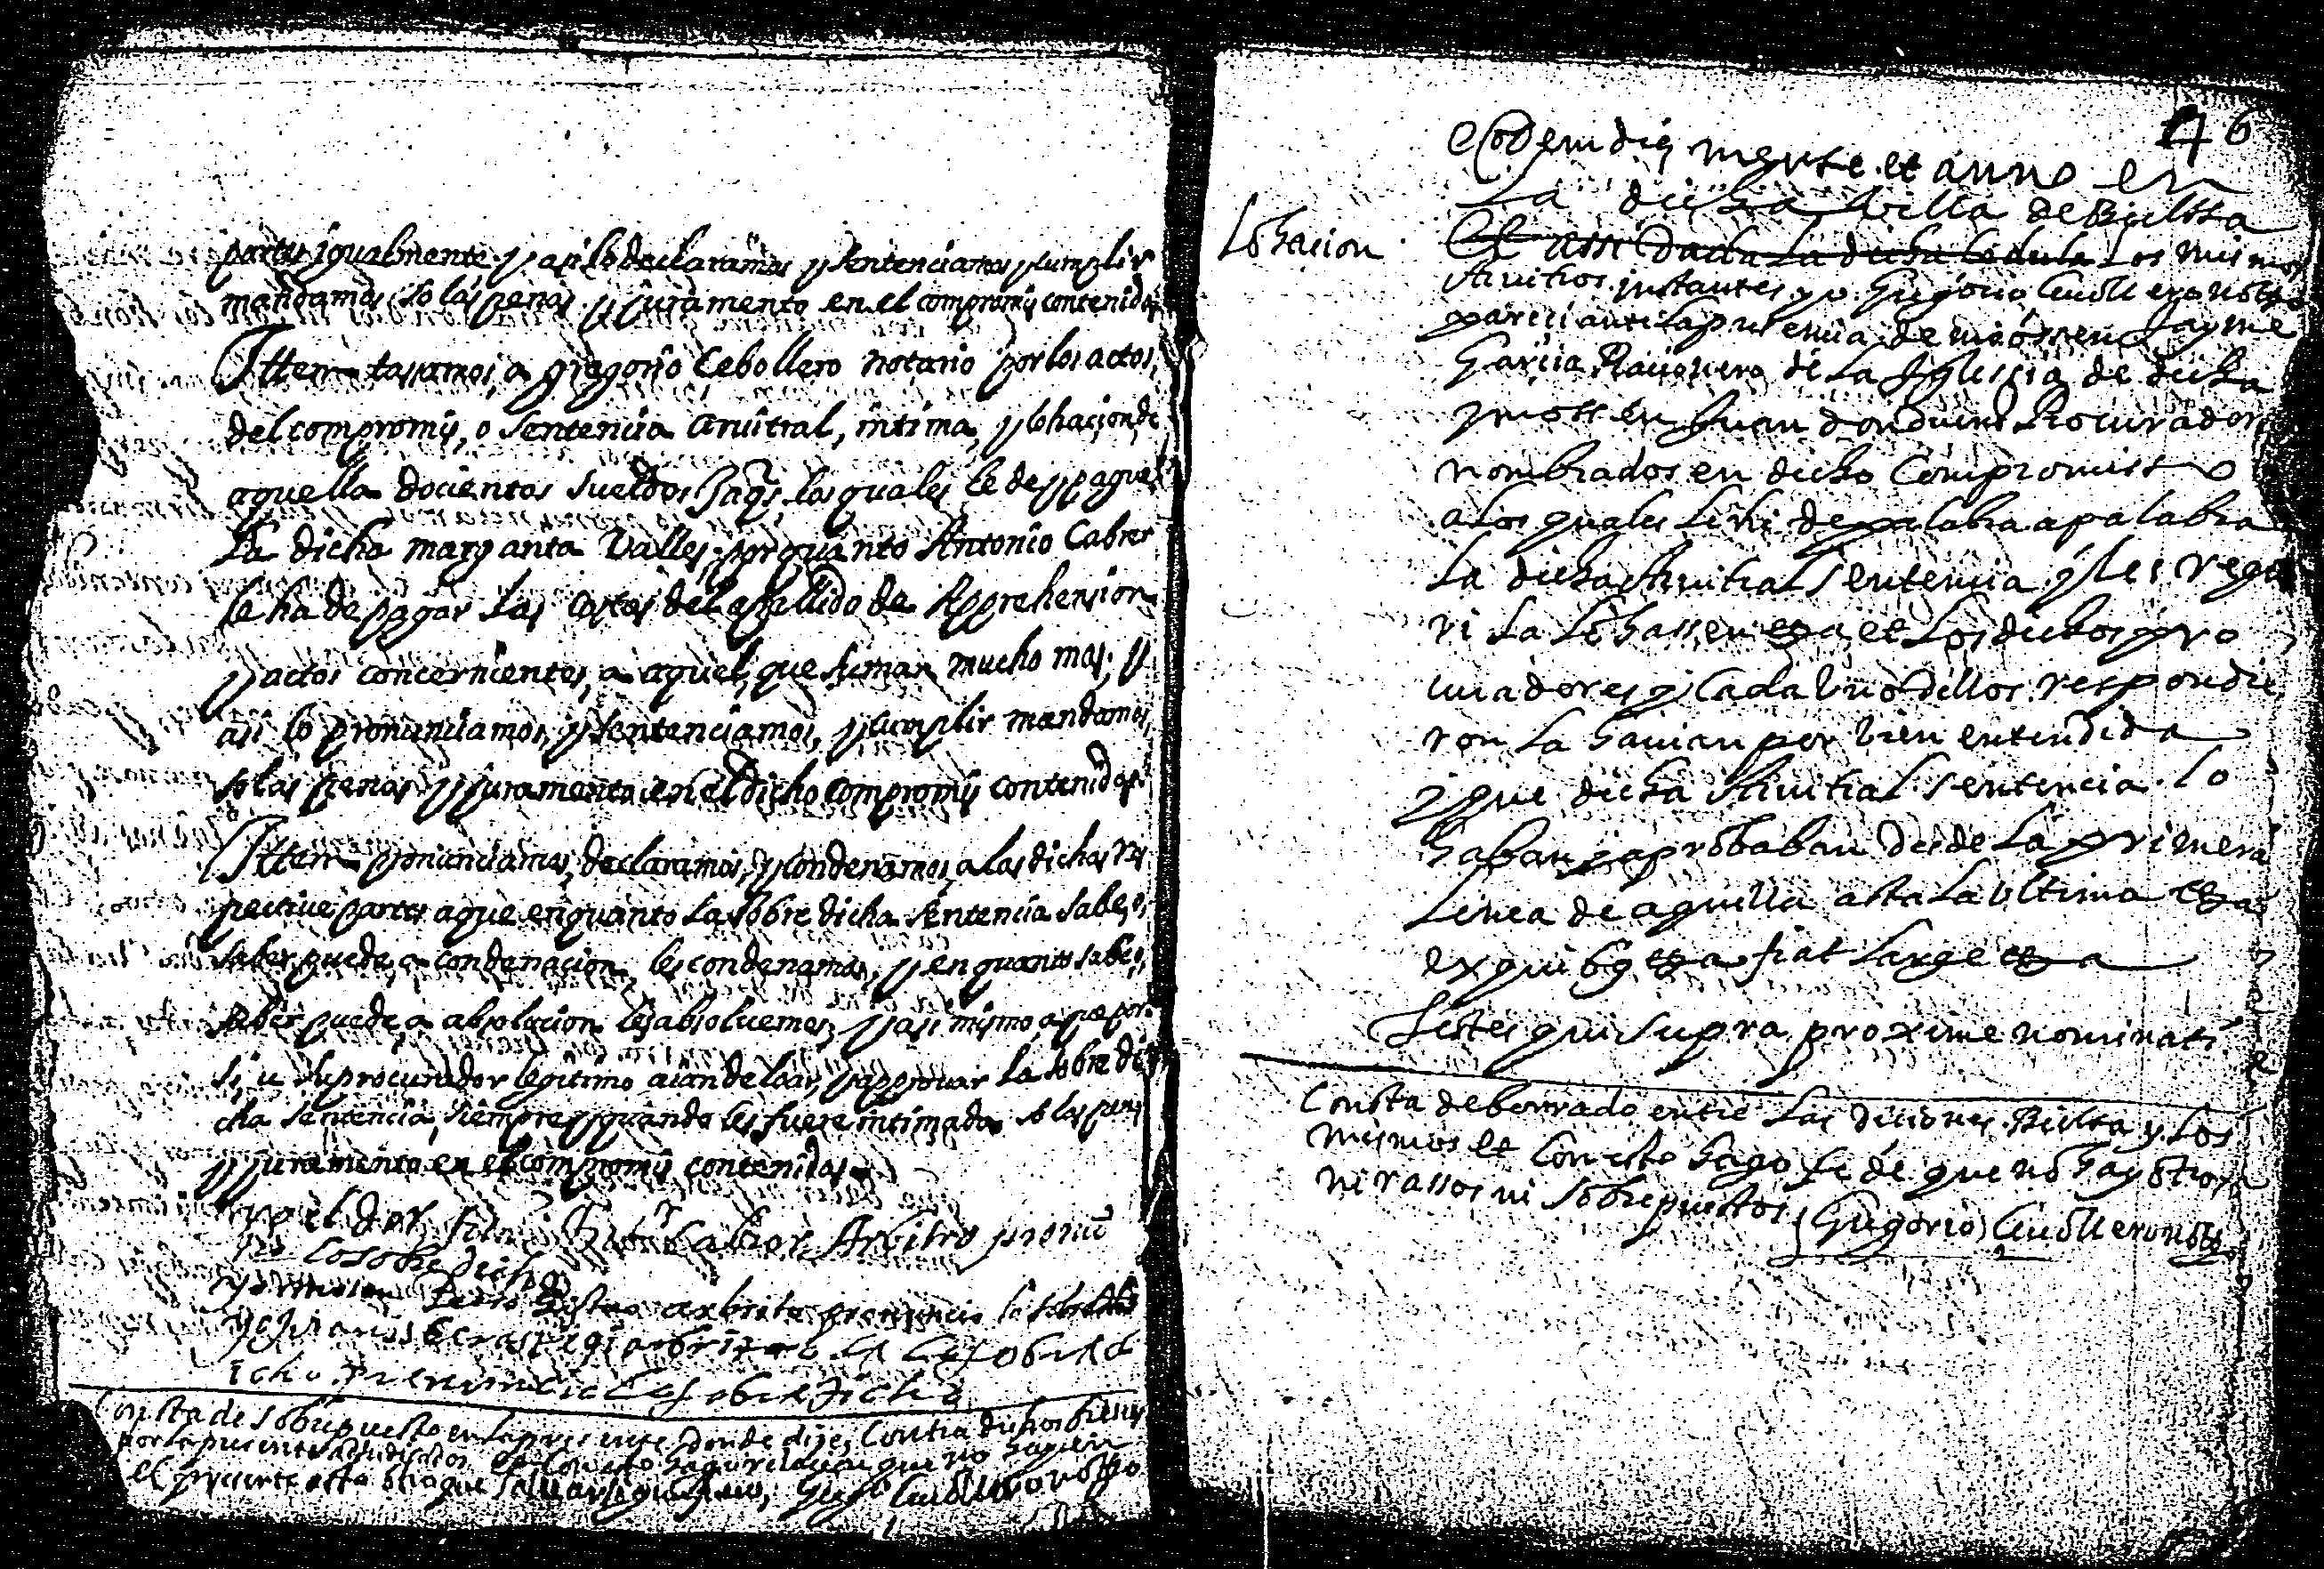 partes igualmente y asi lo declaramos y sentenciamos y cumplir
mandamos so las penas y juramento en el compromis contenidas
Ittem tassamos a gregorio Cebollero notario por los actos
del compromis, o sentencia aruitral, intima, y lohacion de
aquella docientos sueldos Jaqs. los quales le de y pague
La dicha marganta Valles, por quanto Antonio Cabrer
le ha de pagar las costas del apellido de Apprehension
y actos concernientes, a aquel, que suman mucho mas, y
asi lo pronunciamos, y sentenciamos, y cumplir mandamos,
so las penas y juramento en el dicho compromis contenidas
Ittem pronunciamos, declaramos, y condenamos, a las dichas res
pectiue partes a que en quanto la sobre dicha sentencia sabe, o,
saber puede, a condenacion les condenamos, y en quanto sabe, o,
saber puede, a absolucion les absoluemos, y asi mismo a que por
si, u su procurador legitimo aian de loar, y approuar la sobre di
cha sentencia, siempre y quando les fuere intimada so las penas
y juramento en el compromis contenidas
yo el Dor. Cabrer Arbitro pronū
lo sobre dicho
yo mosen Pedro arbitro pronuncio lo sobredicho
arbitro lo sobred
icho pronuncio lo sobredicho
Consta de sobrepuesto en la presente donde dije, Contra dichos bienes
por la presente adjudicados. et Con esto hago relacion que no hay en
el presente acto otro que saluar Gregō Ceuollero notō
46
eodem die mense et anno en
La dicha Villa de Bielssa
Lohacion
Et assi Dada La dicha Cedula Los mismos
Aruitros instantes yo Gregorio Ceuollero notō
pareci ante la presencia de mossen Jayme
Garcia Racionero de La Iglessia de dicha
y mossen Juan donduero Procuradores
nombrados en dicho Compromisso
a Los quales Lehi de palabra a palabra
La dicha Aruitral Sentencia y les reque
ri La Lohassen etca et Los dichos pro
curadores y Cada Vno dellos respondie
ron La hauian por bien entendida
y que dicha Aruitral Sentencia Lo
haban y aprobaban desde La primera
Linea de aquella asta La Vltima etca
ex quibus etca fiat Large etca
Testes qui supra proxime nominati
Consta de borrado entre Las diciones Bielsa y Los
mismos et Con esto hago fe de que no hay otros
ni rassos ni sobrepuestos Gregorio Ceuollero notō